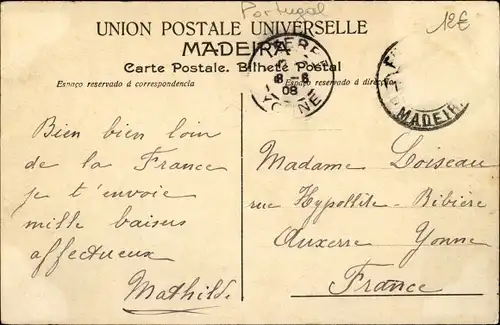 Portugal
12€
UNION POSTALE UNIVERSELLE
MADEIRA
Carte Postale. Bilhete Postal
Espaço reservado á correspondencia
Espaço reservado á direcção
8-8
08
YONNE
MADEIRA
Bien bien loin
de la France
je t'envoie
mille baisers
affectueux
Mathilde
Madame Loiseau
rue Hypollite-Ribière
Auxerre Yonne
France